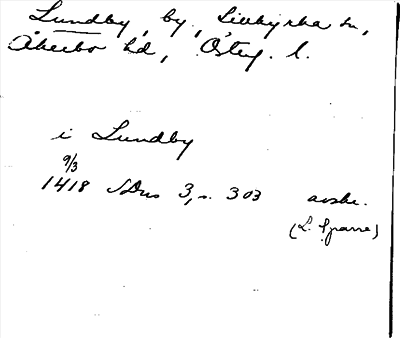 Lundby, by, Livhjrka sn,
Åkerbo hd, Östg. l.
i Lundby
9/3
1418 SDns 3, s. 303 avskr.
(L. Sparre)